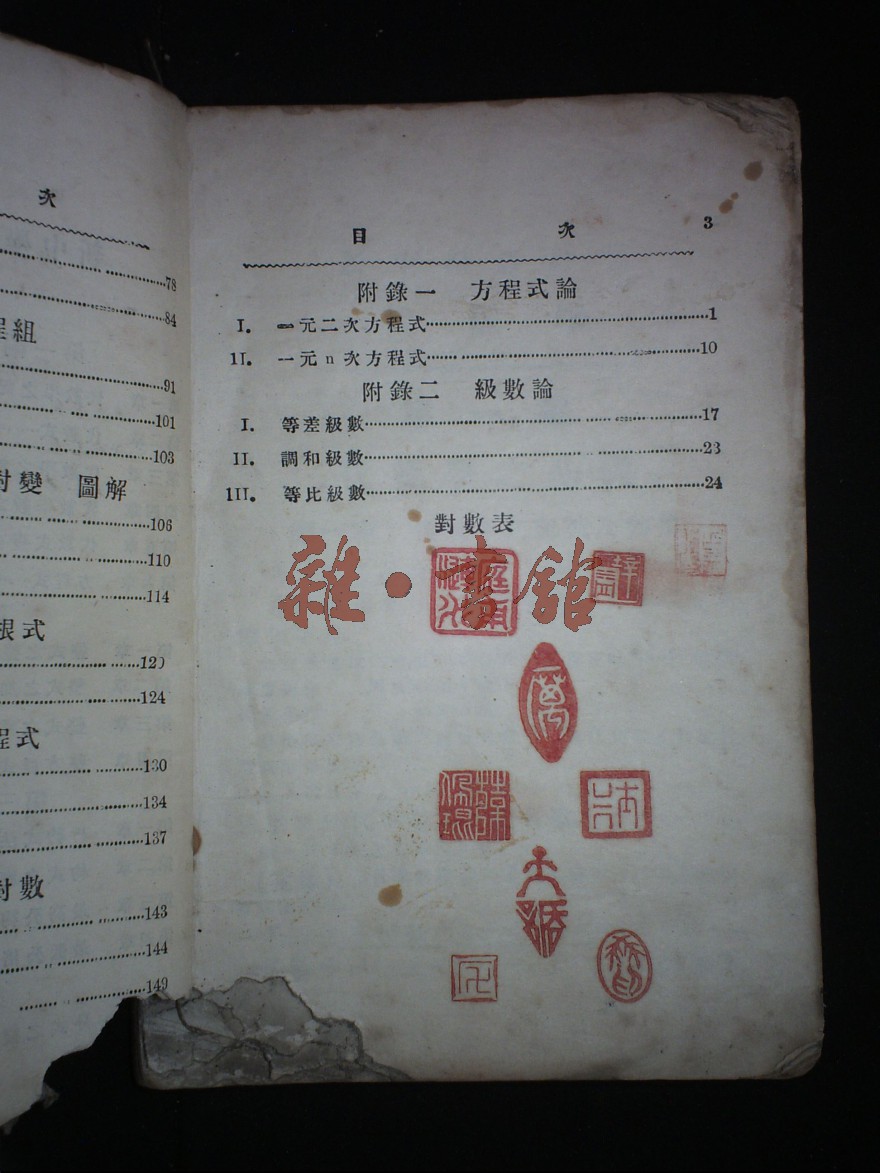 次
78
84
程組
91
101
103
對變 圖解
106
110
114
根式
120
124
程式
130
134
137
對數
143
144
149
目 次 3
附錄一 方程式論
I. 一元二次方程式 1
II. 一元n次方程式 10
附錄二 級數論
I. 等差級數 17
II. 調和級數 23
III. 等比級數 24
對數表
雜·書館